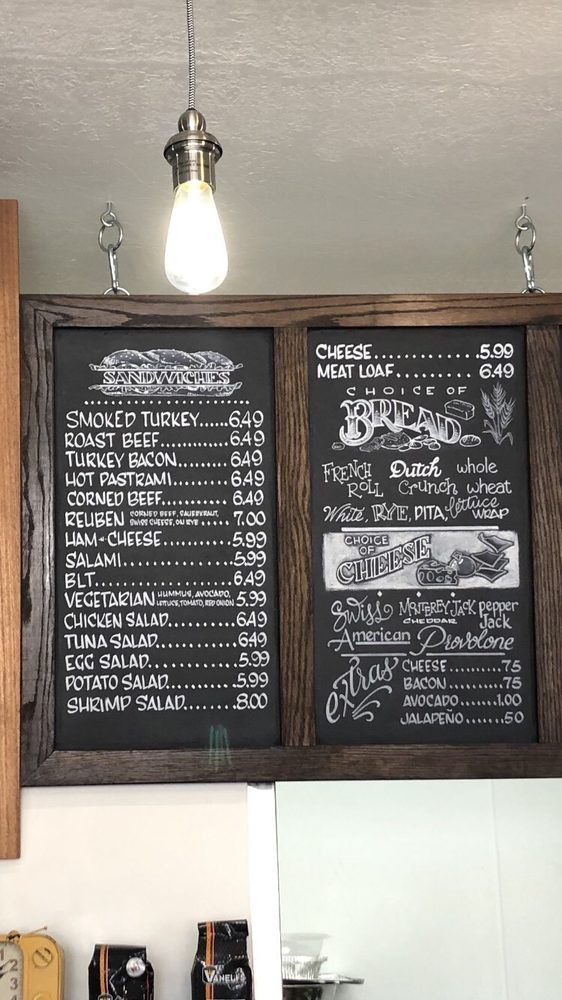 SANDWICHES
SMOKED TURKEY......6.49
ROAST BEEF..............6.49
TURKEY BACON...........6.49
HOT PASTRAMI...........6.49
CORNED BEEF............6.49
REUBEN CORNED BEEF, SAUERKRAUT, SWISS CHEESE, ON RYE.....7.00
HAM & CHEESE............5.99
SALAMI....................5.99
BLT.........................6.49
VEGETARIAN HUMMUS, AVOCADO, LETTUCE, TOMATO, RED ONION 5.99
CHICKEN SALAD..........6.49
TUNA SALAD.............6.49
EGG SALAD...............5.99
POTATO SALAD...........5.99
SHRIMP SALAD.........8.00
CHEESE..............5.99
MEAT LOAF...........6.49
CHOICE OF
BREAD
FRENCH ROLL Dutch Crunch whole wheat
White, RYE, PITA, lettuce WRAP
CHOICE OF
CHEESE
Swiss MONTEREY JACK pepper Jack
CHEDDAR
American Provolone
extras
CHEESE.........75
BACON.........75
AVOCADO......1.00
JALAPEÑO......50
VANELI'S
1
2
3
4